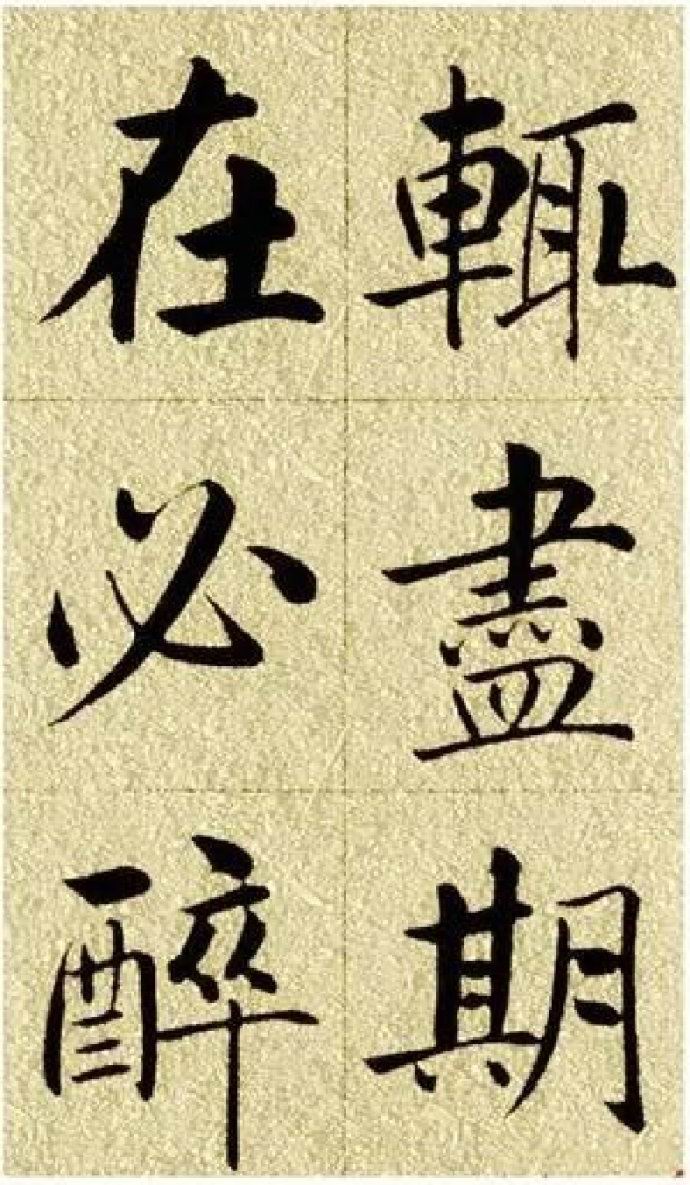 輒盡期
在必醉